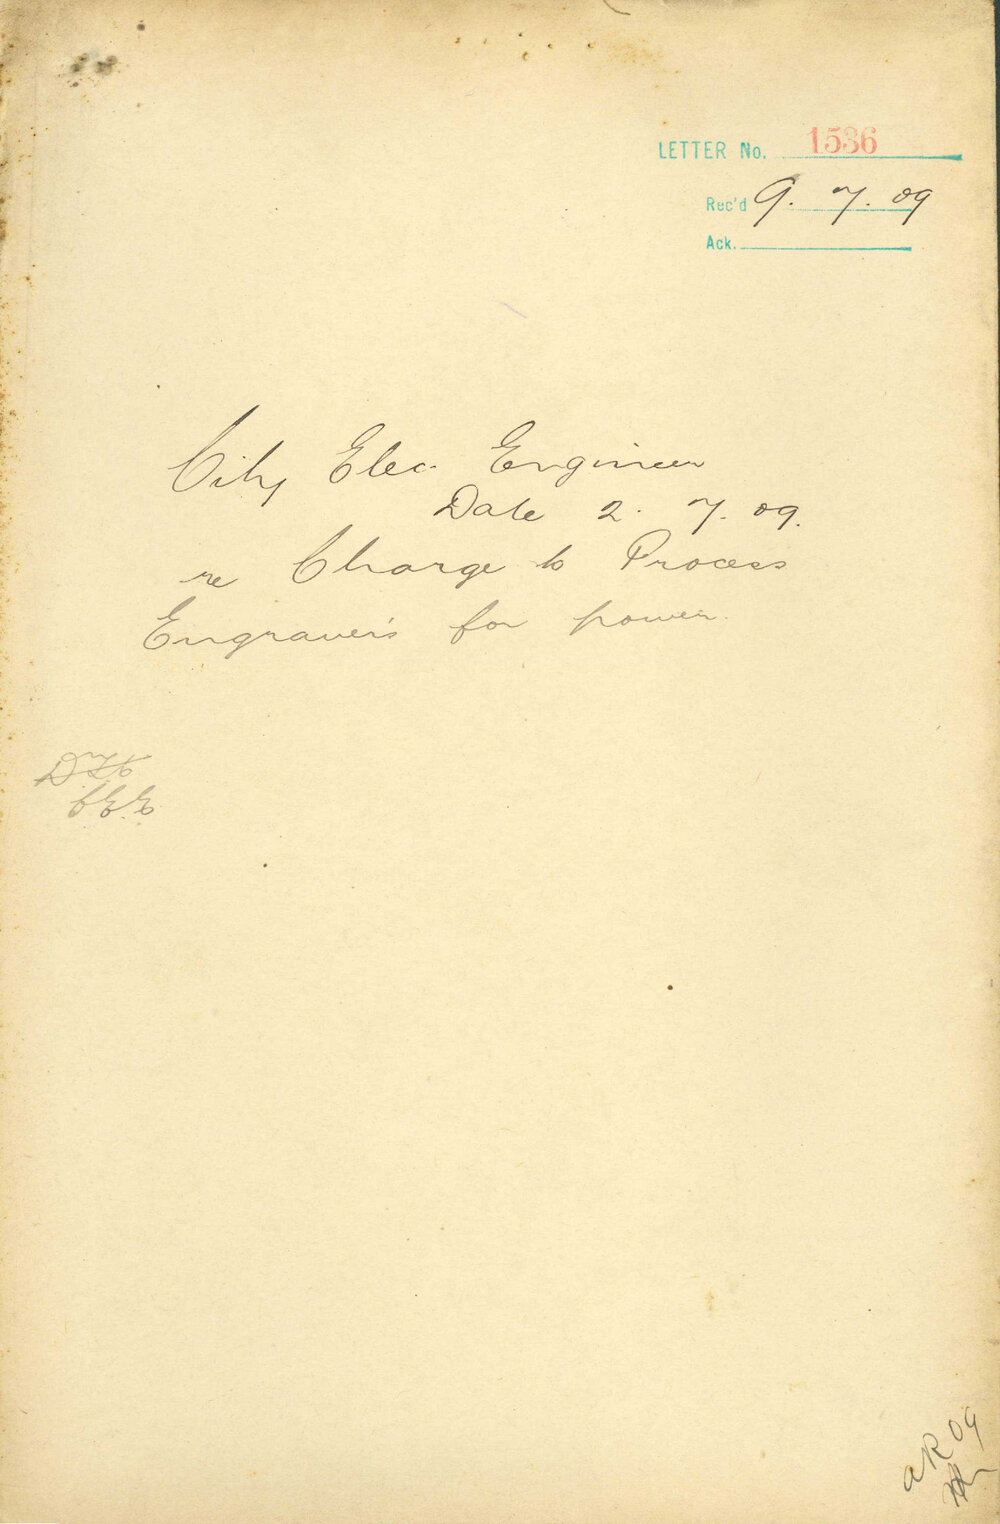 LETTER No. 1536
Rec'd 9. 7. 09
Ack.
City Elec. Engineer
Date 2. 7. 09.
re Charge to Process
Engraver's for power.
C.E.E.
AR 09